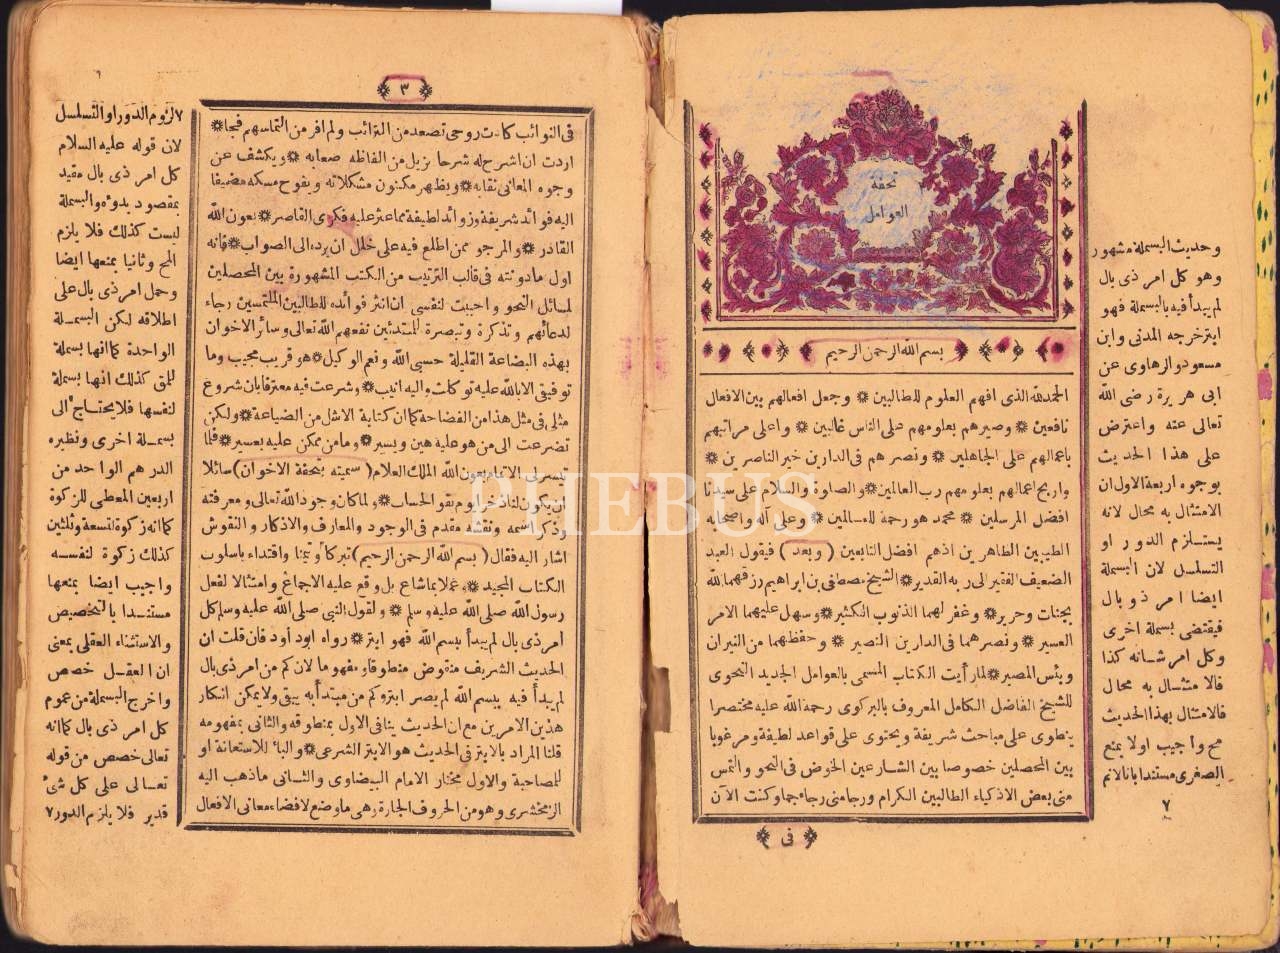 تحفة
العوامل
بسم الله الرحمن الرحيم
الحمد لله الذى افهم العلوم للطالبين ❋ وجعل افعالهم بين الافعال
نافعين ❋ وصيرهم بعلومهم على الناس غالبين ❋ واعلى مراتبهم
باعمالهم على الجاهلين ❋ ونصرهم فى الدارين خير الناصرين ❋
واربح اعمالهم بعلومهم رب العالمين ❋ والصلوة والسلام على سيدنا
افضل المرسلين ❋ محمد هو رحمة للعالمين ❋ وعلى آله واصحابه
الطيبين الطاهرين اذهم افضل التابعين (وبعد) فيقول العبد
الضعيف الفقير الى ربه القدير ❋ الشيخ مصطفى بن ابراهيم رزقهما الله
بجنات وحرير ❋ وغفر لهما الذنوب الكثير ❋ وسهل عليهما الامر
العسير ❋ ونصرهما فى الدارين النصير ❋ وحفظهما من النيران
وبئس المصير ❋ لما رأيت الكتاب المسمى بالعوامل الجديد النحوى
للشيخ الفاضل الكامل المعروف بالبركوى رحمة الله عليه مختصرا
ينطوى على مباحث شريفة ويحتوى على قواعد لطيفة ومرغوبا
بين المحصلين خصوصا بين الشارعين الخوض فى النحو والتمس
منى بعض الاذكياء الطالبين الكرام ورجا منى رجاء جما وكنت الآن
فى
وحديث البسملة مشهور
وهو كل امر ذى بال
لم يبدأ فيه بالبسملة فهو
ابتر خرجه المدنى وابن
مسعود والرهاوى عن
ابى هريرة رضى الله
تعالى عنه واعترض
على هذا الحديث
بوجوه اربعة الاول ان
الامتثال به محال لانه
يستلزم الدور او
التسلسل لان البسملة
ايضا امر ذو بال
فيقتضى بسملة اخرى
وكل امر شانه كذا
فالامتثال به محال
فالامتثال بهذا الحديث
مح واجيب اولا بمنع
الصغرى مستندا بانا لانم
٧
٣
فى النوائب كادت روحى تصعد من الترائب ولم افر من التماسهم فيجا ❋
اردت ان اشرح له شرحا يزيل من الفاظه صعابه ❋ ويكشف عن
وجوه المعانى نقابه ❋ ويظهر مكنون مشكلاته ويفوح مسكه مضيفا
اليه فوائد شريفة وزوائد لطيفة مما عثر عليه فكرى القاصر ❋ بعون الله
القادر ❋ والمرجو ممن اطلع فيه على خلل ان يرده الى الصواب ❋ فانه
اول ما دونته فى قالب الترتيب من الكتب المشهورة بين المحصلين
لمسائل النحو واحببت لنفسى ان انثر فوائده للطالبين الملتمسين رجاء
لدعائهم وتذكرة وتبصرة للمبتدئين نفعهم الله تعالى وسائر الاخوان
بهذه البضاعة القليلة حسبى الله ونعم الوكيل ❋ هو قريب مجيب وما
توفيقى الا بالله عليه توكلت واليه انيب ❋ وشرعت فيه معترفا بان شروع
مثلى فى مثل هذا من الفضاحة كما ان كتابة الاشل من الضياعة ❋ ولكن
تضرعت الى من هو عليه هين ويسير ❋ وما من ممكن عليه بعسير ❋ فلما
تيسر لى الاتمام بعون الله الملك العلام (سميته بتحفة الاخوان) سائلا
ان يكون لنا ذخرا يوم يقوم الحساب ❋ ولما كان وجود الله تعالى ومعرفته
وذكر اسمه ونقشه مقدم فى الوجود والمعارف والاذكار والنقوش
اشار اليه فقال (بسم الله الرحمن الرحيم) تبركا وتيمنا واقتداء باسلوب
الكتاب المجيد ❋ وعملا بما شاع بل وقع عليه الاجماع وامتثالا لفعل
رسول الله صلى الله عليه وسلم ❋ ولقول النبى صلى الله عليه وسلم كل
امر ذى بال لم يبدأ ببسم الله فهو ابتر ❋ رواه ابو داود فان قلت ان
الحديث الشريف منقوض منطوقا ومفهوما لان كم من امر ذى بال
لم يبدأ فيه ببسم الله لم يصر ابتر وكم من مبتدأ به يبقى ولا يمكن انكار
هذين الامرين مع ان الحديث ينافى الاول بمنطوقه والثانى بمفهومه
قلنا المراد بالابتر فى الحديث هو الابتر الشرعى ❋ والباء للاستعانة او
للمصاحبة والاول مختار الامام البيضاوى والثانى ما ذهب اليه
الزمخشرى وهو من الحروف الجارة وهى ما وضع لافضاء معانى الافعال
٧ لزوم الدور او التسلسل
لان قوله عليه السلام
كل امر ذى بال مقيد
بمقصود بدوئه والبسملة
ليست كذلك فلا يلزم
المح وثانيا بمنعها ايضا
وحمل امر ذى بال على
اطلاقه لكن البسملة
الواحدة كما انها بسملة
للمق كذلك انها بسملة
لنفسها فلا يحتاج الى
بسملة اخرى ونظيره
الدرهم الواحد من
اربعين المعطى للزكوة
كما انه زكوة لتسعة وثلثين
كذلك زكوة لنفسه
واجيب ايضا بمنعها
مستندا بالتخصيص
والاستثناء العقلى بمعنى
ان العقل خصص
واخرج البسملة من عموم
كل امر ذى بال كما انه
تعالى خصص من قوله
تعالى على كل شئ
قدير فلا يلزم الدور ٧
PHEBUS